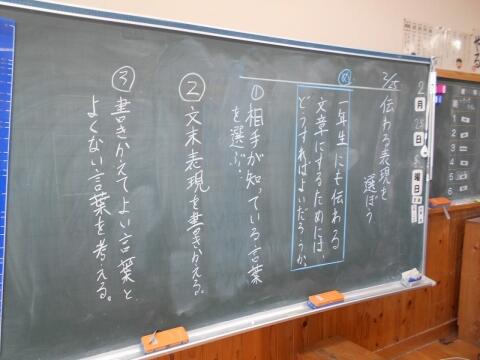 2月
日
曜日
2/25 伝わる表現を
選ぼう
め
一年生にも伝わる
文章にするためには、
どうすればよいだろうか。
①相手が知っている言葉
を選ぶ。
②文末表現を書きかえる。
③書きかえてよい言葉と
よくない言葉を考える。
1
2
3
4
5
6